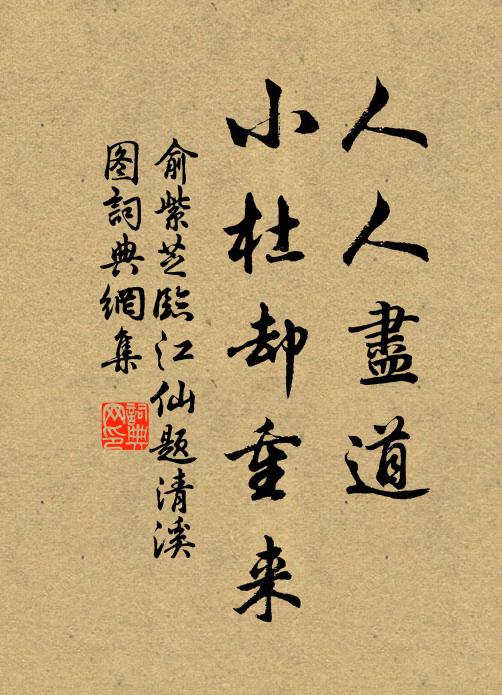 人人盡道
小杜却重来
俞紫芝臨江仙题清溪
图詞典網集
詞典
网印